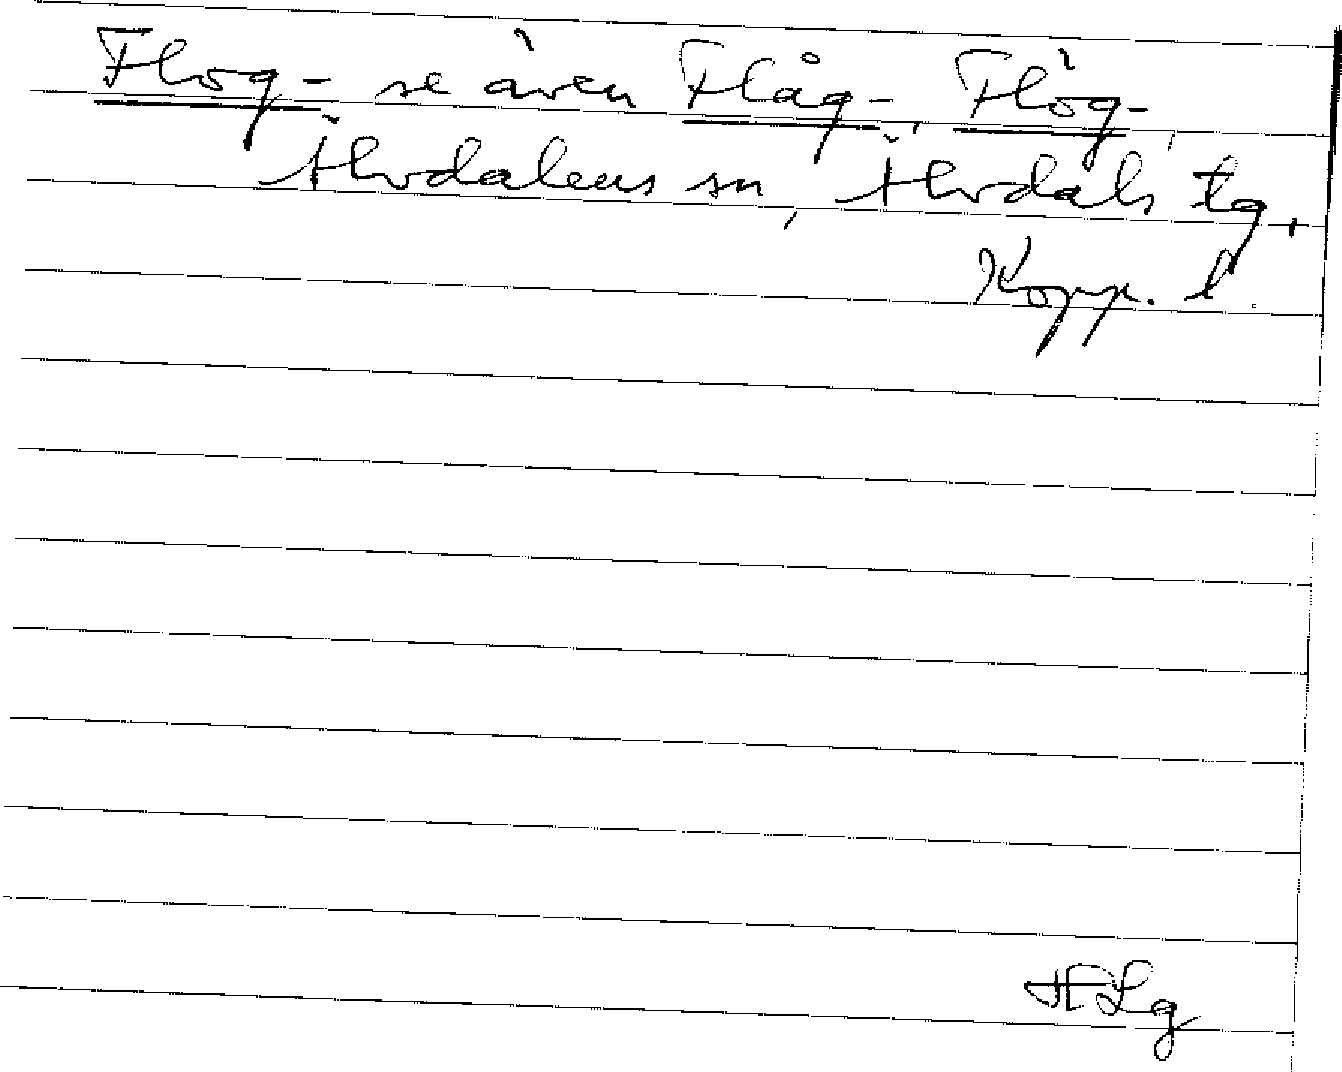 Flog- se även Flåg-, Flög-,
Älvdalens sn, Älvdals tg,
Kopp. l.
HLg